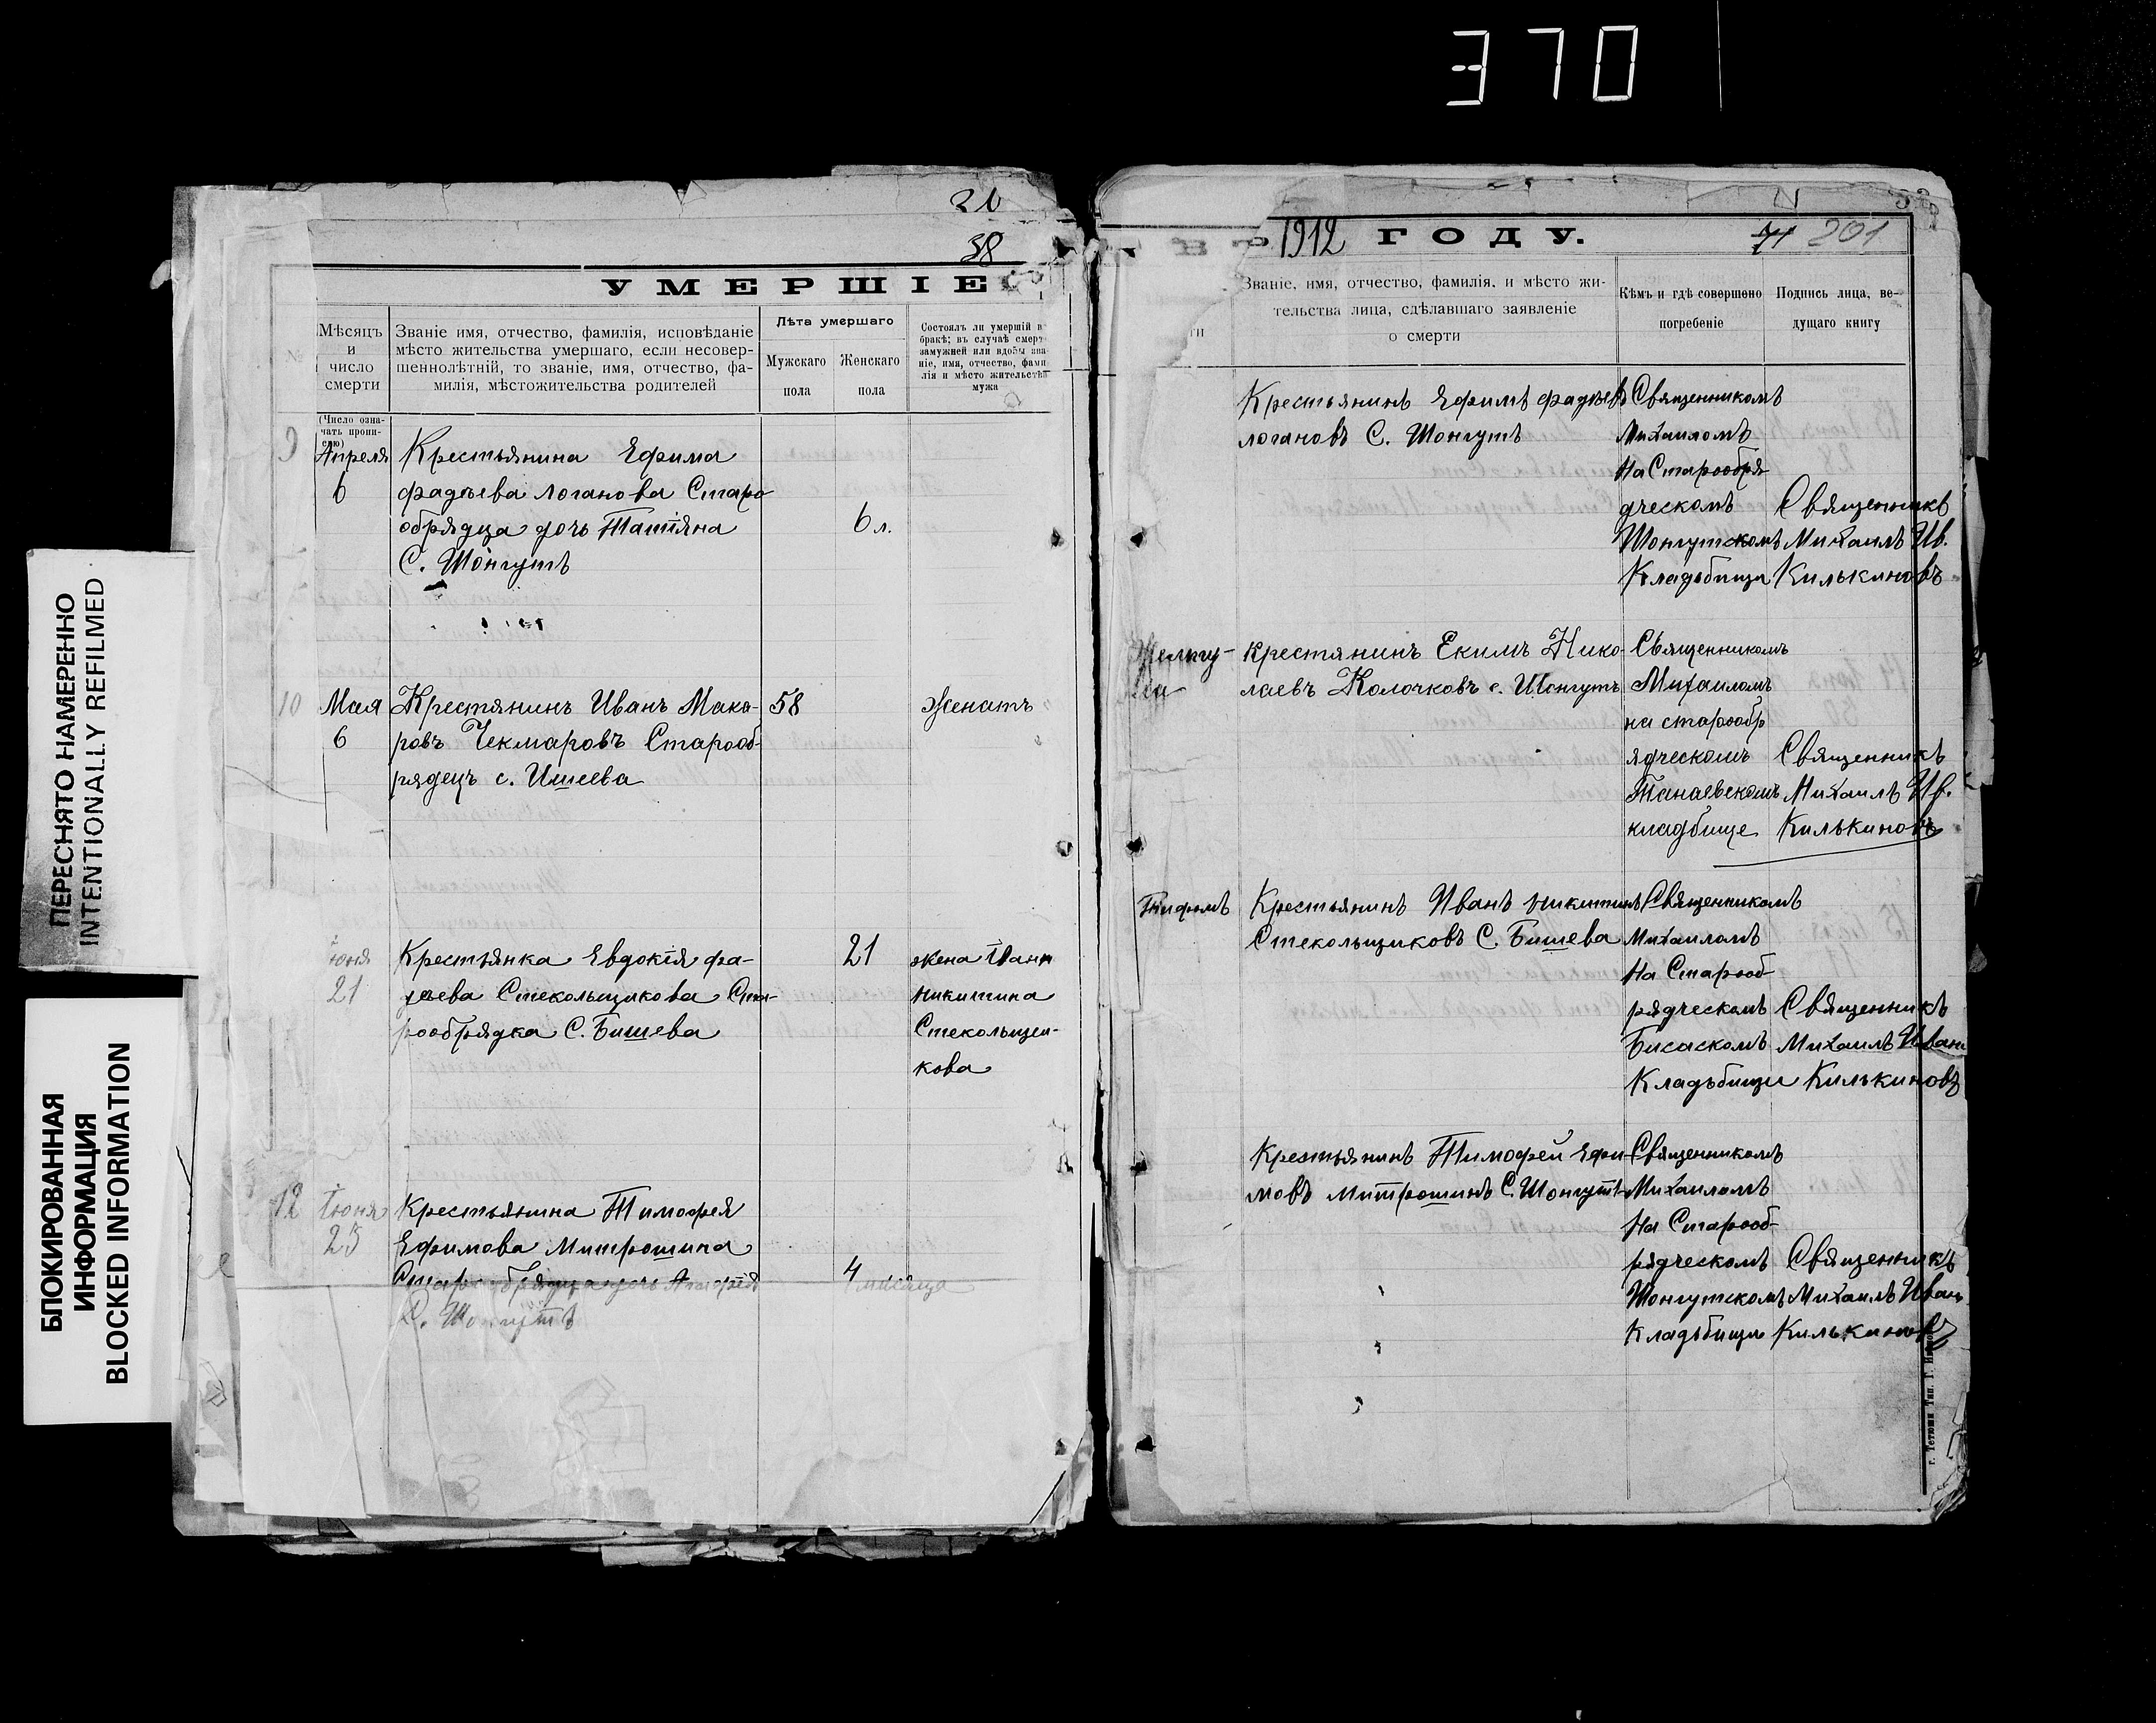 370
ПЕРЕСНЯТО НАМЕРЕННО
INTENTIONALLY REFILMED
БЛОКИРОВАННАЯ
ИНФОРМАЦИЯ
BLOCKED INFORMATION
38
УМЕРШІЕ
№
Мѣсяцъ
и
число
смерти
Званіе имя, отчество, фамилія, исповѣданіе
мѣсто жительства умершаго, если несовер-
шеннолѣтній, то званіе, имя, отчество, фа-
милія, мѣстожительства родителей
Лѣта умершаго
Мужскаго
пола
Женскаго
пола
Состоялъ ли умершій в
бракѣ; въ случаѣ смерт
замужней или вдовы зва-
ніе, имя, отчество, фами
лія и мѣсто жительства
мужа
(Число озна-
чать пропи-
сью)
9
Апреля
6
Крестьянина Ефима
фадѣева Логанова Старо-
обрядца дочь Татіяна
С. Шонгутъ
6 л.
10
Мая
6
Крестянинъ Иванъ Мака-
ровъ Чекмаровъ Старооб-
рядецъ с. Ишеева
58
Женатъ
Іюня
21
Крестьянка Евдокія фа-
деева Стекольщикова Ста-
рообрядка С. Бишева
21
жена Ивана
Никитина
Стекольщи-
кова
12
Іюня
25
Крестьянина Тимофея
Ефимова Митрошина
Старообрядца дочь
С. Шонгутъ
4 месяца
1912 ГОДУ.
71 201
Званіе, имя, отчество, фамилія, и мѣсто жи-
тельства лица, сдѣлавшаго заявленіе
о смерти
Кѣмъ и гдѣ совершено
погребеніе
Подпись лица, ве-
дущаго книгу
Крестьянинъ Ефимъ фадѣевъ
Логановъ С. Шонгутъ
Священникомъ
Михаиломъ
На Старообря
дческомъ
Шонгутскомъ
Кладьбища
Священникъ
Михаилъ Ив.
Килькиновъ
крестянинъ Екимъ Нико-
лаевъ Колочковъ с. Шонгутъ
Священникомъ
Михаиломъ
на старообр
ядческомъ
Танаевскомъ
кладбище
Священникъ
Михаилъ Ив.
Килькиновъ
Тифомъ
Крестьянинъ Иванъ Никитинъ
Стекольщиковъ С. Бишева
Священникомъ
Михаиломъ
На Старооб-
рядческомъ
Кладьбищи
Священникъ
Михаилъ Иван
Килькиновъ
Крестьянинъ Тимофей Ефи-
мовъ Митрошинъ С. Шонгутъ
Священникомъ
Михаиломъ
На Старооб-
рядческомъ
Шонгутскомъ
Кладьбищи
Священникъ
Михаилъ Иван
Килькиновъ